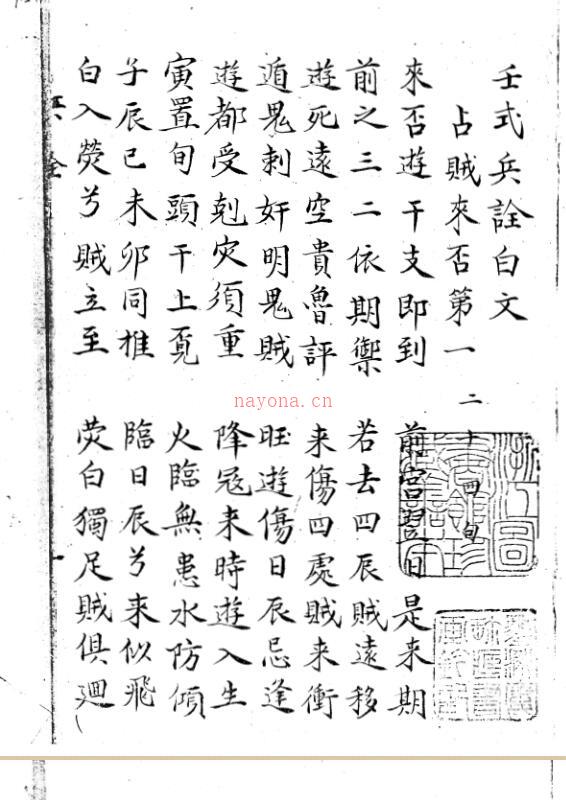 壬式兵詮白文
占賊來否第一 二十四句
來否遊干支即到 前宮翌日是來期
前之三二依期禦 若去四辰賊遠移
遊死遠空貴魯評 来傷四處賊来衝
遁鬼刺奸明鬼賊 旺遊傷日辰忌逢
遊都受剋灾須重 降冦来時遊入生
寅置旬頭干上覔 火臨無患水防傾
子辰巳未卯同推 臨日辰兮来似飛
白入熒兮賊立至 荧白獨足賊俱廻
兵
一
nayona.cn